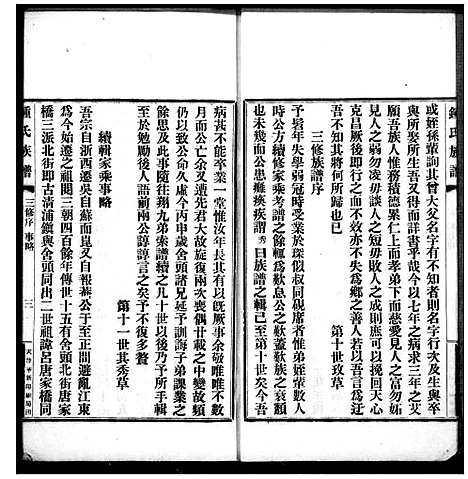 鍾氏族譜
或姪孫輩詢其曾大父名字有不知者則名字行次及生與卒
與所娶所生出古之明而得詳書乎哉今以七年之病求三年之艾
願吾族人惟務積德累仁上而孝弟下而慈愛見人之富勿妬
見人之弱勿凌毋談人之短毋敗人之成則庶可以挽回天心
克昌厥後即行之而不效亦不失為鄉之善人若以吾言為迂
吾不知其將何所歸也已
第十世攻草
三修族譜序
予暑年失學弱冠時受業於琛似叔同硯席者惟弟姪輩數人
時公方續修家乘考譜之餘輒為歎息公之歎蓋歎族之衰頹
也未幾而公患癱瘓疾謂秀曰族譜之輯已至第十世矣今吾
病甚不能卒業一堂惟汝年長其有以既厥事余敬唯唯不數
月而公亡余又遭先君大故旋復兩次喪偶廿載之中變故頻
仍以致公命久虛今丙申歲舍頭諸兄延予訓誨子弟課業之
餘憶及此事隨往翔九弟索譜續之凡十世以後乃予所手輯
至於勉勵後人語前兩公諄諄言之矣予不復多贅
第十一世其秀草
續輯家乘事略
吾宗自浙西遷吳自蘇而崑又自報恭公于至正間避亂江東
為今始遷之祖閱三朝四百餘年傳世十五有舍頭北街唐家
橋三派北街即古清浦鎮與舍頭同出二世祖諱呂唐家橋同
鍾氏族譜
三修序 事略
三